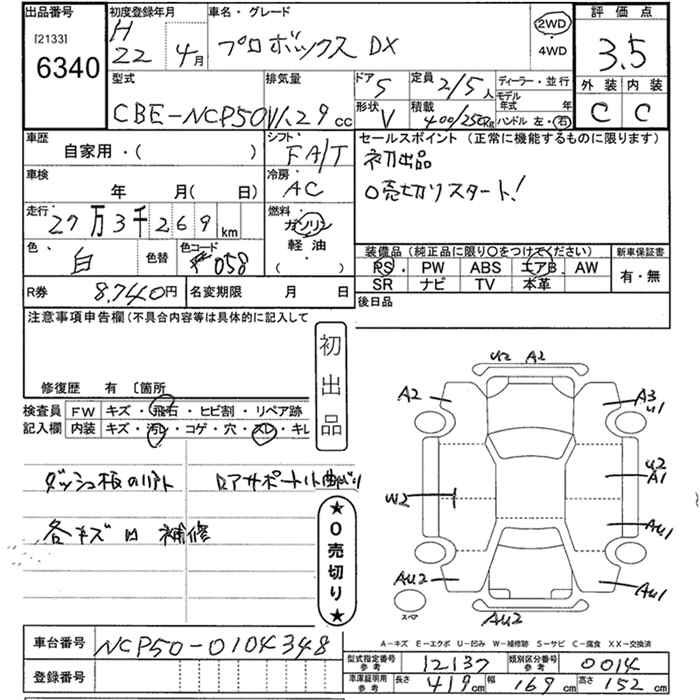 出品番号
[2133]
6340
初度登録年月
H
22年 4月
車名・グレード
プロボックス DX
2WD
・
4WD
評価点
3.5
外装 内装
C C
型式
CBE-NCP50V
排気量
1.29 cc
ドア 5
形状 V
定員 2/5人
積載 400/250Kg
ディーラー・並行
モデル年式 年
ハンドル 左・右
車歴
自家用・( )
シフト
FA/T
セールスポイント (正常に機能するものに限ります)
初出品
0売切りスタート!
車検
年 月( 日)
冷房
AC
走行
27万3千269km
燃料
ガソリン
軽油
( )
色
白
色替
色コード
#058
装備品(純正品に限り〇をつけてください)
PS・PW ABS エアB AW
SR ナビ TV 本革
新車保証書
有・無
R券 8,740円
名変期限 月 日
後日品
注意事項申告欄(不具合内容等は具体的に記入して
修復歴 有 〔箇所
初出品
検査員記入欄
FW キズ・飛石・ヒビ割・リペア跡
内装 キズ・汚レ・コゲ・穴・スレ・キレ
ダッシュ板のリフト
ロアサポート小曲がり
各キズ凹 補修
★0売切り★
U2 A2
A2
A3
U1
U2
A1
W2
AU1
AU2
AU1
AU2
スペア
A-キズ E-エクボ U-凹み W-補修跡 S-サビ C-腐食 XX-交換済
車台番号 NCP50-0104348
登録番号
型式指定番号 参考 12137
類別区分番号 参考 0014
車庫証明用 参考 長さ 419cm 幅 169cm 高さ 152cm